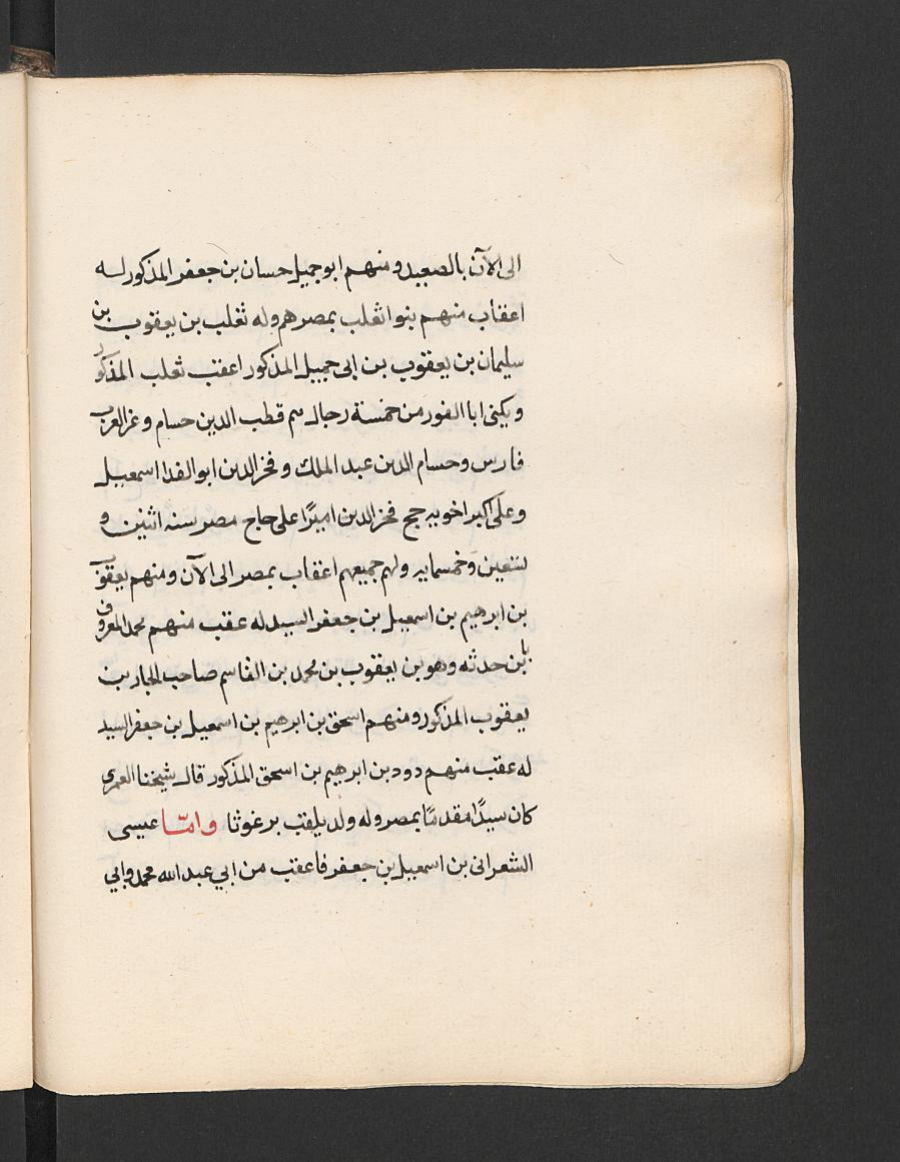 الى الآن بالصعيد ومنهم ابو جميل حسان بن جعفر المذكور له
اعقاب منهم بنوا ثعلب بمصر هم وله ثعلب بن يعقوب بن
سليمان بن يعقوب بن ابى جميل المذكور اعقب ثعلب المذكور
ويكنى ابا الفور من خمسة رجال هم قطب الدين حسام وعز العرب
فارس وحسام الدين عبد الملك وفخر الدين ابو الفدا اسمعيل
وعلى اكبر اخويه حج فخر الدين اميرًا على حاج مصر سنه اثنين و
تسعين وخمسمايه ولهم جميعهم اعقاب بمصر الى الآن ومنهم يعقوب
بن ابرهيم بن اسمعيل بن جعفر السيد له عقب منهم محمد المعروف
بابن حدثه وهو بن يعقوب بن محمد بن القاسم صاحب الجار بن
يعقوب المذكور ومنهم اسحق بن ابرهيم بن اسمعيل بن جعفر السيد
له عقب منهم دود بن ابرهيم بن اسحق المذكور قال شيخنا العمرى
كان سيدًا مقدمًا بمصر وله ولد يلقب برغوثا وامّا عيسى
الشعرانى بن اسمعيل بن جعفر فاعقب من ابي عبد الله محمد وابي